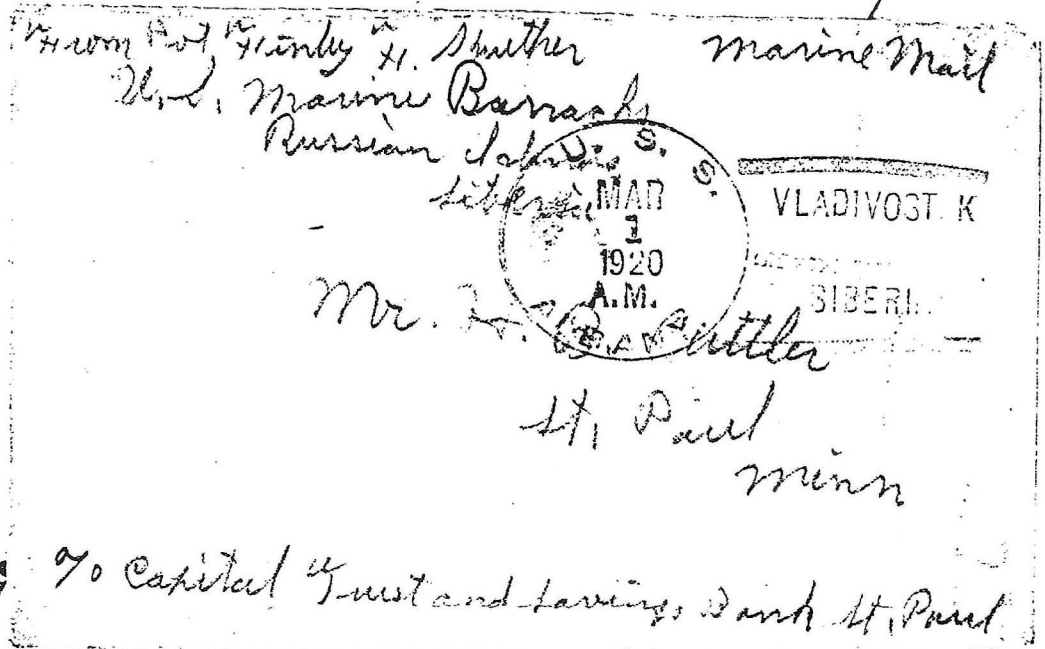 From Pvt. Finley H. Shuther
Marine Mail
U.S. Marine Barracks
Russian Island
Siberia
U. S. S.
MAR
1
1920
A.M.
VLADIVOST K
SIBERI
Mr. H. B.
St, Paul
Minn
℅ Capital Trust and Savings Bank St, Paul